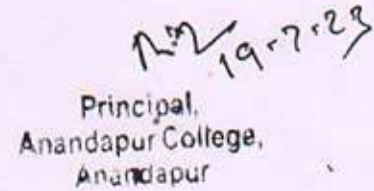 19.7.23
Principal,
Anandapur College,
Anandapur